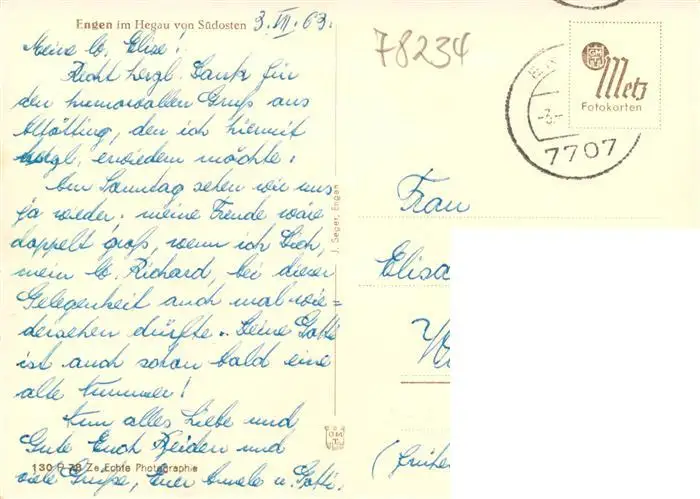 Engen im Hegau von Südosten 3. VII. 63.
Meine lb. Elise!
Recht herzl. Dank für
den humorvollen Gruß aus
Altötting, den ich hiermit
herzl. erwiedern möchte.
Am Sonntag sehen wir uns
ja wieder. meine Freude wäre
doppelt groß, wenn ich Dich,
mein lb. Richard, bei dieser
Gelegenheit auch mal wie=
dersehen dürfte. Deine Gotti
ist auch schon bald eine
alte Nummer!
Nun alles Liebe und
Gute Euch Beiden und
viele Grüße, Euer u. Gotti.
130 78 Ze Echte Photographie
J. Seger, Engen
GMTS
78234
GMTS
Metz
Fotokarten
7707
Frau
Elisa
(früher